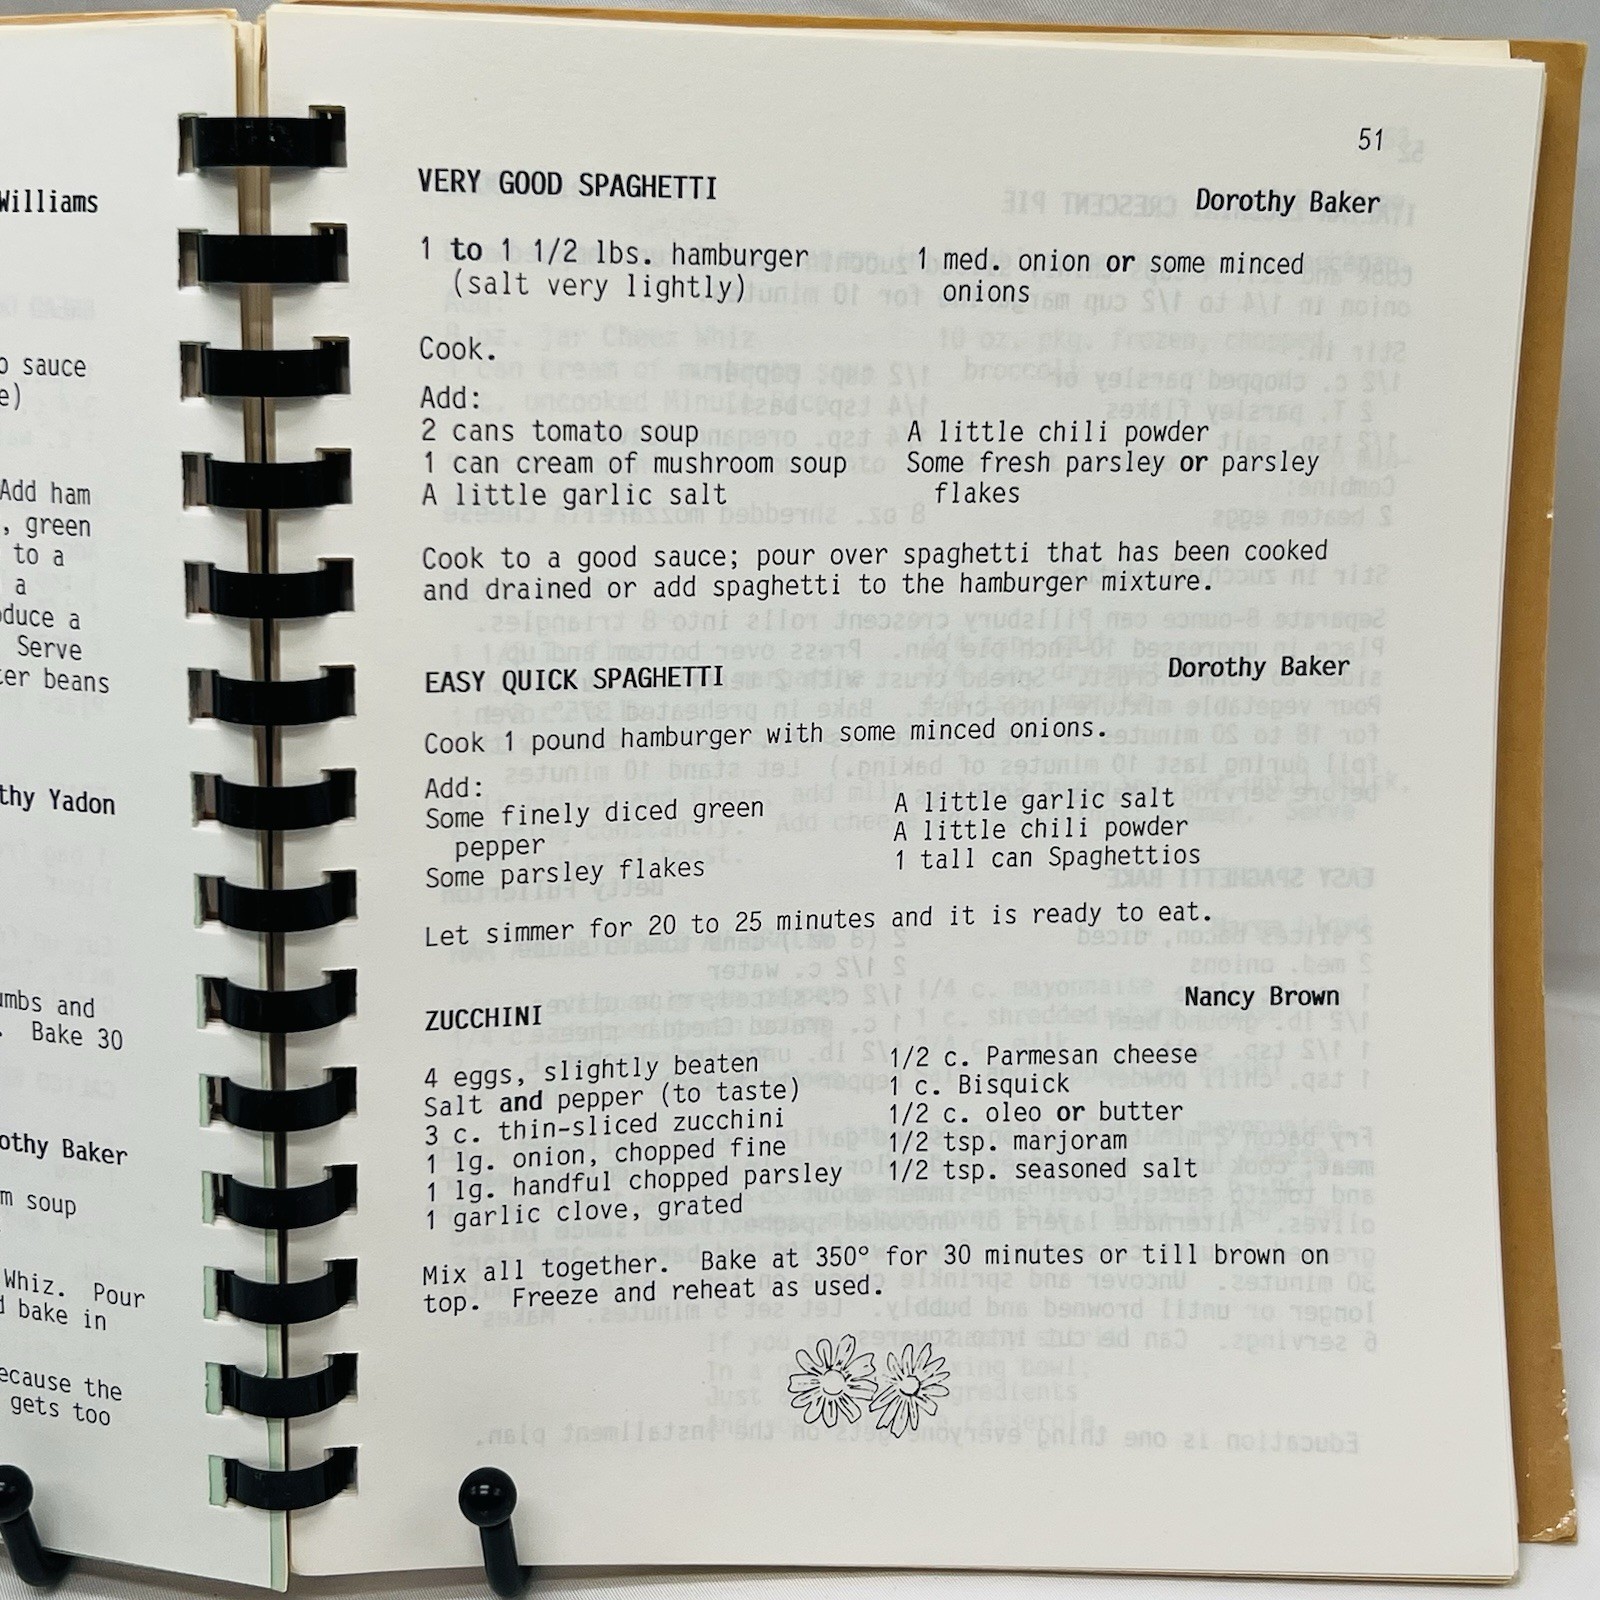 Williams
sauce
Add ham
, green
to a
a
Serve
beans
Yadon
and
. Bake 30
Dorothy Baker
soup
Whiz. Pour
bake in
because the
gets too
51
VERY GOOD SPAGHETTI
Dorothy Baker
1 to 1 1/2 lbs. hamburger
(salt very lightly)
1 med. onion or some minced
onions
Cook.
Add:
2 cans tomato soup
1 can cream of mushroom soup
A little garlic salt
A little chili powder
Some fresh parsley or parsley
flakes
Cook to a good sauce; pour over spaghetti that has been cooked
and drained or add spaghetti to the hamburger mixture.
EASY QUICK SPAGHETTI
Dorothy Baker
Cook 1 pound hamburger with some minced onions.
Add:
Some finely diced green
pepper
Some parsley flakes
A little garlic salt
A little chili powder
1 tall can Spaghettios
Let simmer for 20 to 25 minutes and it is ready to eat.
ZUCCHINI
Nancy Brown
4 eggs, slightly beaten
Salt and pepper (to taste)
3 c. thin-sliced zucchini
1 lg. onion, chopped fine
1 lg. handful chopped parsley
1 garlic clove, grated
1/2 c. Parmesan cheese
1 c. Bisquick
1/2 c. oleo or butter
1/2 tsp. marjoram
1/2 tsp. seasoned salt
Mix all together. Bake at 350° for 30 minutes or till brown on
top. Freeze and reheat as used.